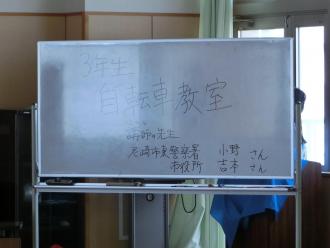 3年生
自転車教室
講師の先生
尼崎市東警察署 小野 さん
市役所 吉本 さん